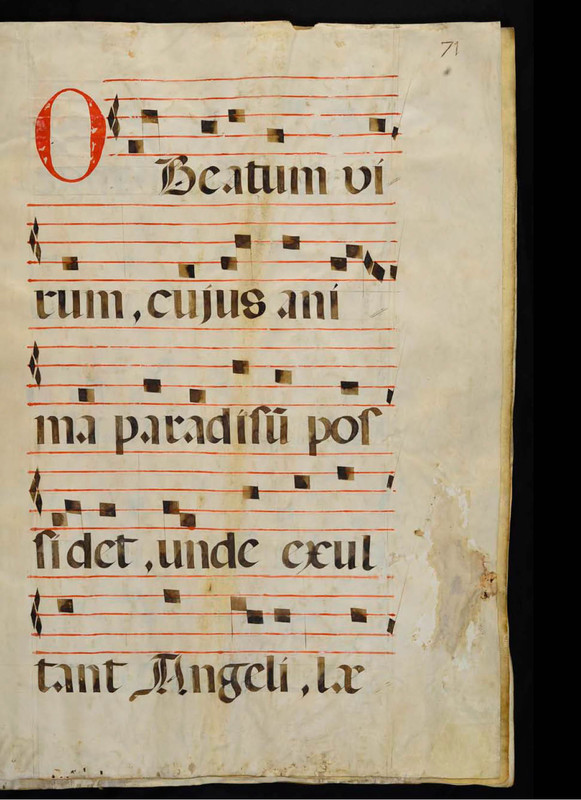 71
O Beatum vi
rum, cujus ani
ma paradisū pos
sidet, unde exul
tant Angeli, læ